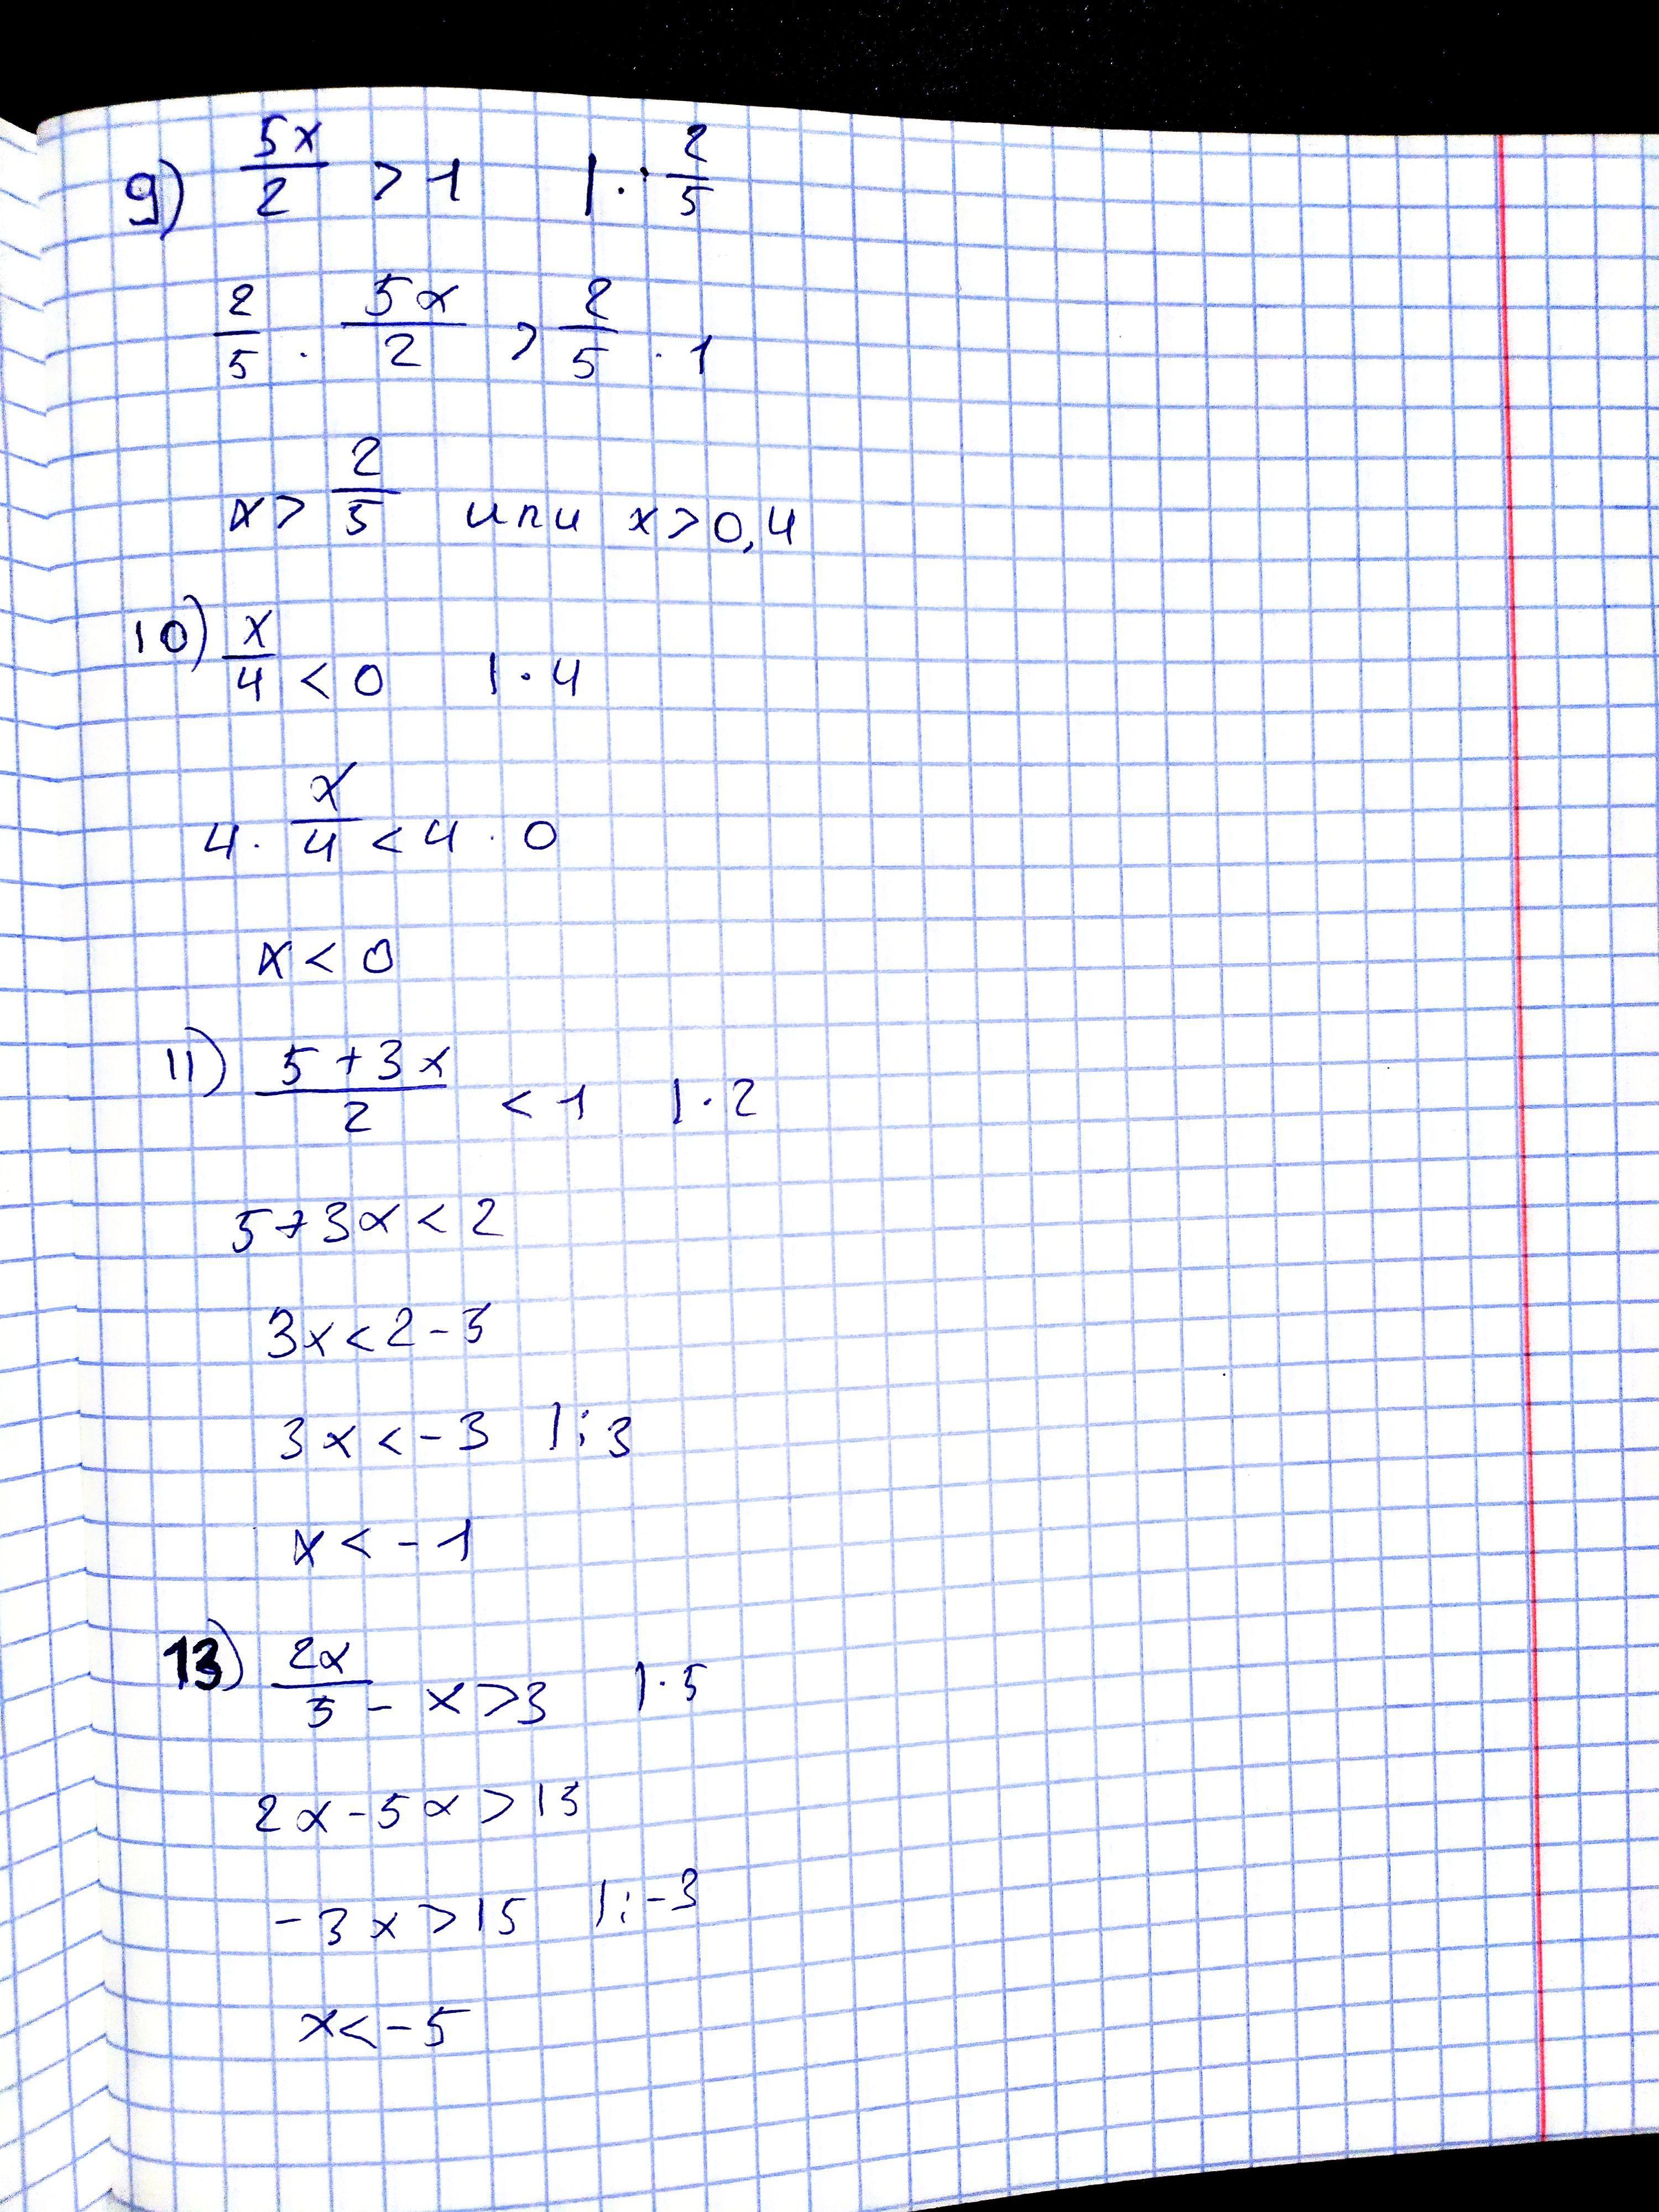 9) 5x/2 > 1 | · 2/5
2/5 · 5x/2 > 2/5 · 1
x > 2/5 или x > 0,4
10) x/4 < 0 | · 4
4 · x/4 < 4 · 0
x < 0
11) 5 + 3x/2 < 1 | · 2
5 + 3x < 2
3x < 2 - 5
3x < -3 | : 3
x < -1
13) 2x/5 - x > 3 | · 5
2x - 5x > 15
-3x > 15 | : -3
x < -5